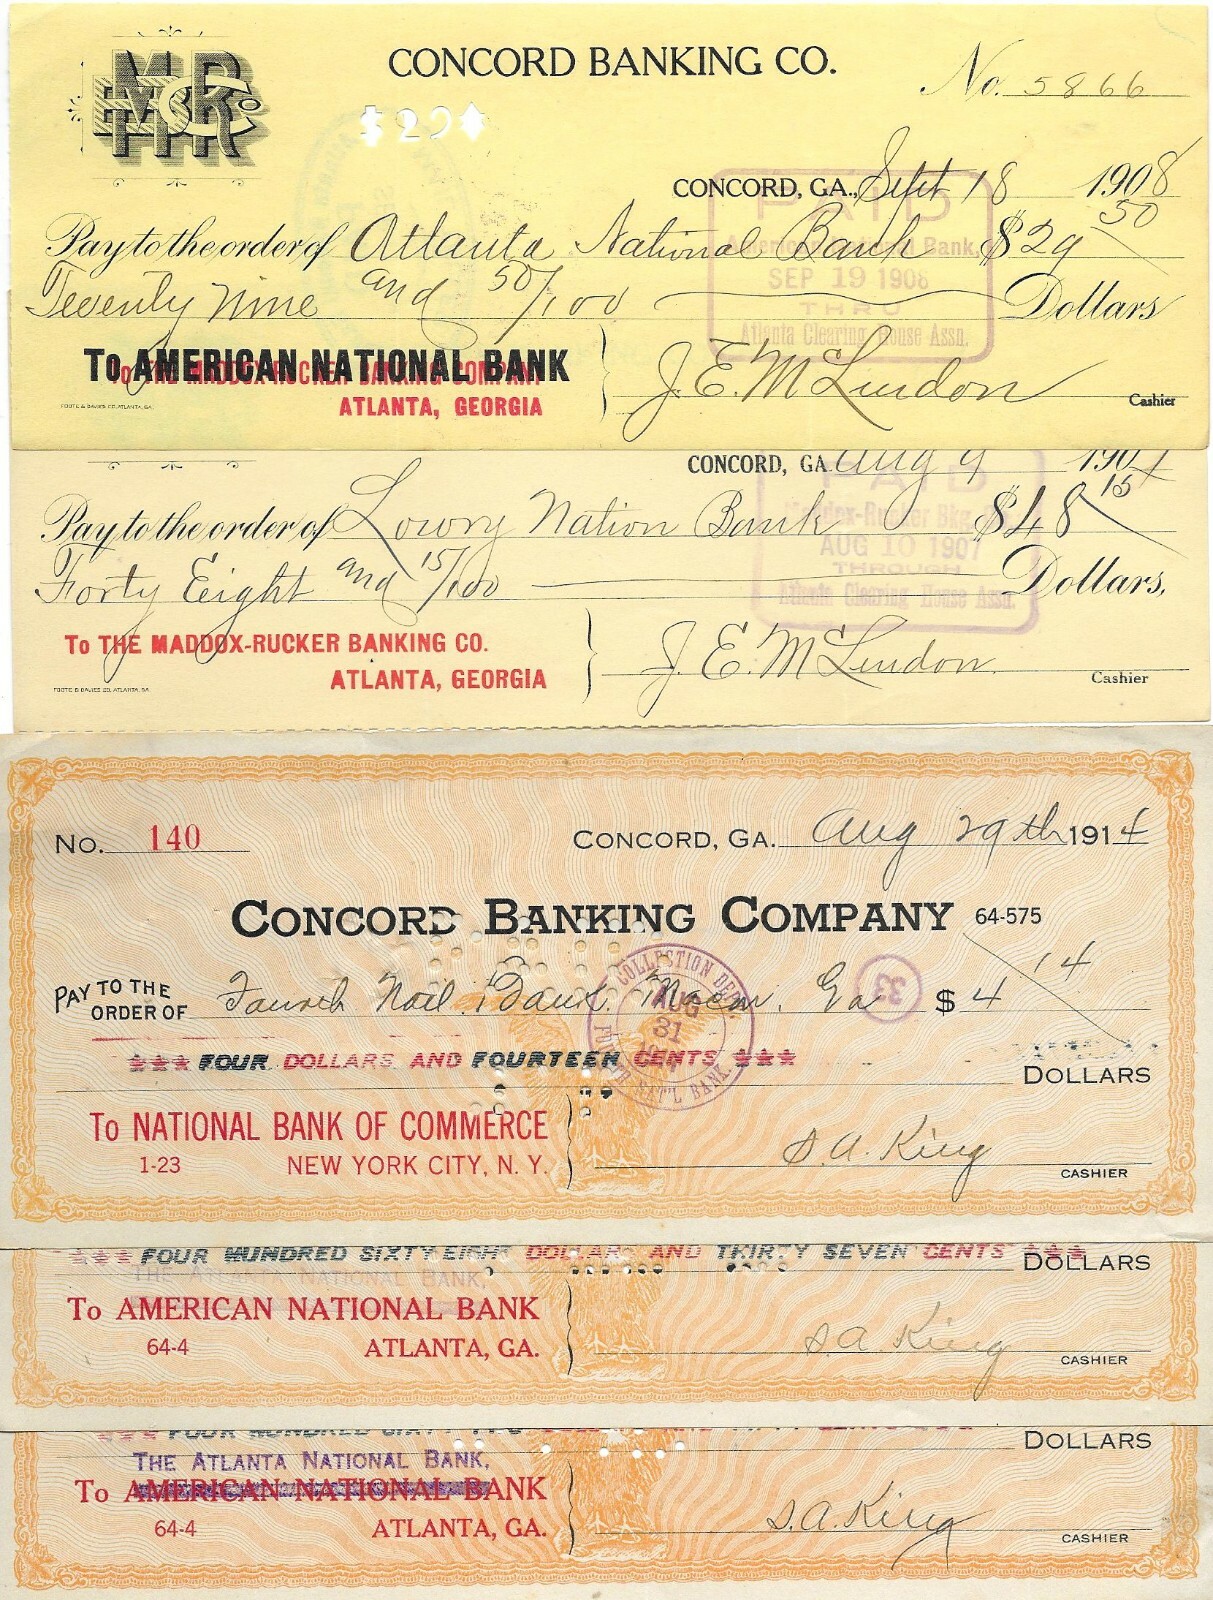 CONCORD BANKING CO.
No. 5866
$29
CONCORD, GA., Sept 18 1908
Pay to the order of Atlanta National Bank $29 50
Twenty Nine and 50/100 Dollars
PAID
American National Bank,
SEP 19 1908
THRU
Atlanta Clearing House Assn.
To THE MADDOX-RUCKER BANKING COMPANY
To AMERICAN NATIONAL BANK
ATLANTA, GEORGIA
J. E. McLendon
Cashier
FOOTE & DAVIES CO. ATLANTA, GA.
CONCORD, GA. Aug 9 1907
Pay to the order of Lowry Nation Bank $48 15
Forty Eight and 15/100 Dollars,
PAID
Maddox-Rucker Bkg. Co.
AUG 10 1907
THROUGH
Atlanta Clearing House Assn.
To THE MADDOX-RUCKER BANKING CO.
ATLANTA, GEORGIA
J. E. McLendon
Cashier
FOOTE & DAVIES CO. ATLANTA, GA
No. 140
CONCORD, GA. Aug 29th 1914
CONCORD BANKING COMPANY 64-575
PAY TO THE ORDER OF Fourth Natl. Bank. Macon, Ga $ 4 14
33
COLLECTION DEPT.
AUG
31
FOURTH NAT'L BANK
*** FOUR DOLLARS AND FOURTEEN CENTS ***
DOLLARS
To NATIONAL BANK OF COMMERCE
1-23 NEW YORK CITY, N. Y.
S. A. King
CASHIER
*** FOUR HUNDRED SIXTY EIGHT DOLLARS AND THIRTY SEVEN CENTS ***
DOLLARS
THE ATLANTA NATIONAL BANK,
To AMERICAN NATIONAL BANK
64-4 ATLANTA, GA.
S. A. King
CASHIER
DOLLARS
THE ATLANTA NATIONAL BANK,
To AMERICAN NATIONAL BANK
64-4 ATLANTA, GA.
S. A. King
CASHIER